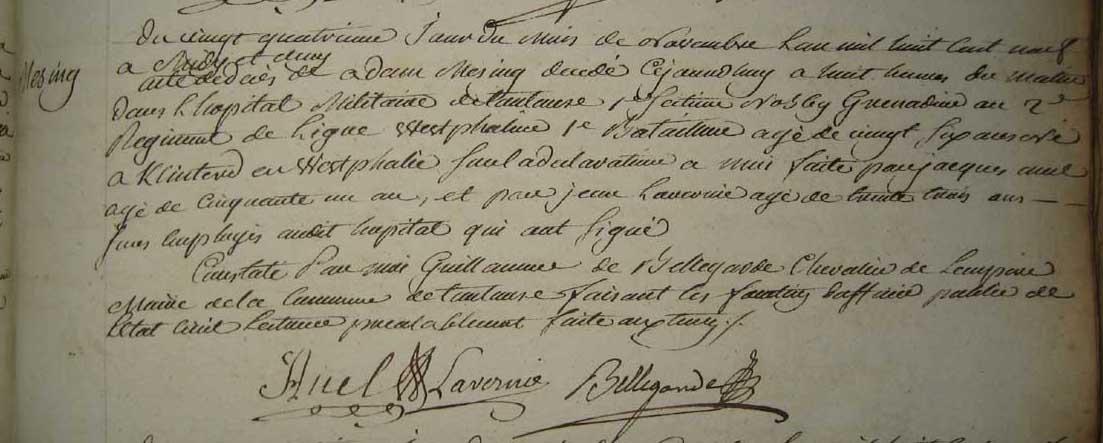 Mesing
Du vingt quatrieme Jour du Mois de Novembre L'an mil huit cent neuf
a Midy et demy
acte de decès de adam Mesing decedé Cejourd'huy a huit heures du matin
dans L'hopital Militaire de toulouse Grenadier au 2e
Regiment de Ligne Westphalien 1e Bataillon agé de vingt six ans né
a en Westphalie Sur la declaration a moi faite par jacques huel
agé de Cinquante un an, et par jean Lavernie agé de trente trois ans
tous employés audit hopital qui ont Signé
Constaté Par moi Guillaume de Bellegarde Chevalier de L'empire
Maire de la Commune de toulouse faisant les fonctions d'officier public de
L'état Civil Lecture prealablement faite aux
Huel Lavernie Bellegarde